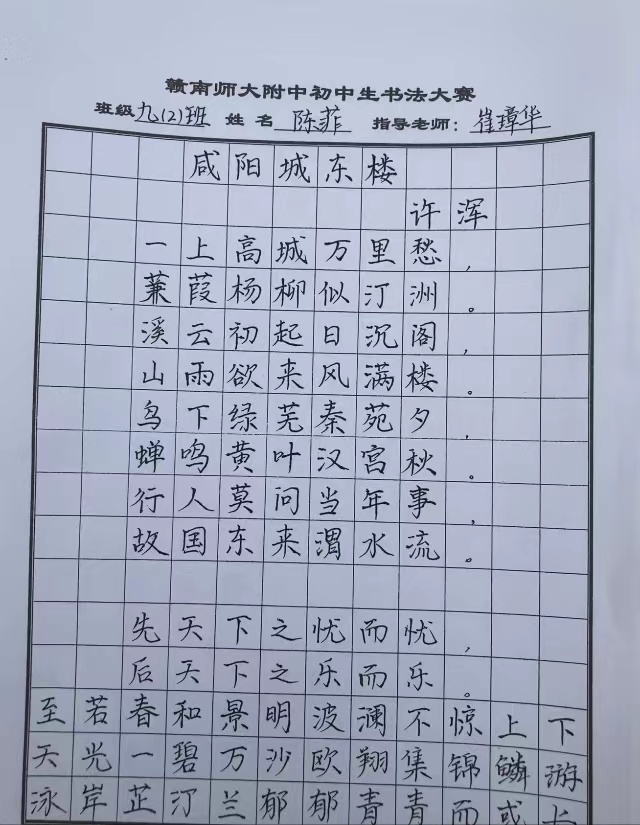 赣南师大附中初中生书法大赛
班级 九(2)班 姓名 陈菲 指导老师: 崔璋华
咸阳城东楼
许浑
一上高城万里愁,
蒹葭杨柳似汀洲。
溪云初起日沉阁,
山雨欲来风满楼。
鸟下绿芜秦苑夕,
蝉鸣黄叶汉宫秋。
行人莫问当年事,
故国东来渭水流。
先天下之忧而忧,
后天下之乐而乐。
至若春和景明波澜不惊上下
天光一碧万沙欧翔集锦鳞游
泳岸芷汀兰郁郁青青而或